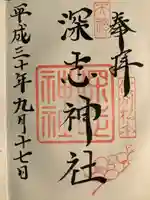 奉拝
深志神社
平成三十年九月十七日